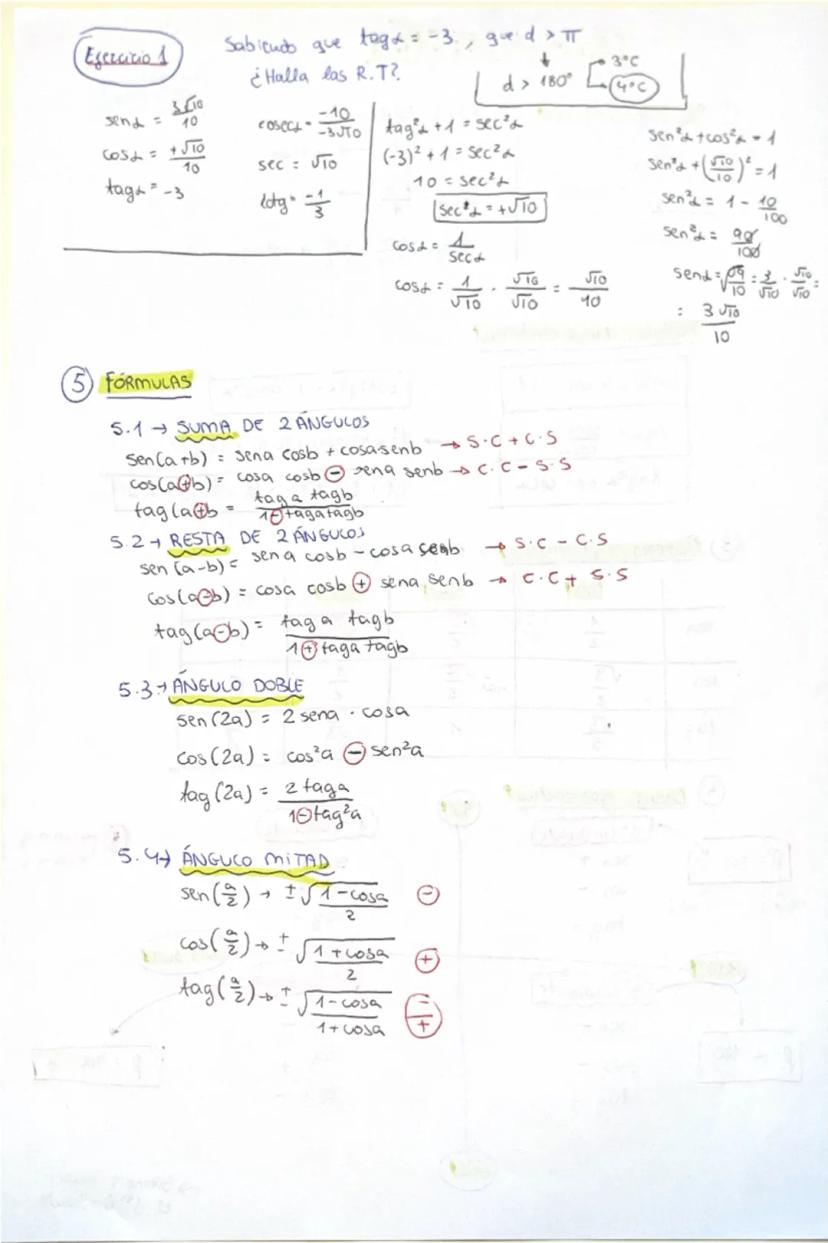 Ejercicio 1
Sabiendo que tagα = -3, que α > π
¿Halla las R.T?
α > 180° 3°C
4°C
senα = 3√10/10
cosα = +√10/10
tagα = -3
cosecα = -10/-3√10
sec = √10
cotg = -1/3
tag²α + 1 = sec²α
(-3)² + 1 = sec²α
10 = sec²α
sec²α = +√10
cosα = 1/secα
cosα = 1/√10 · √10/√10 = √10/10
sen²α + cos²α = 1
sen²α + (√10/10)² = 1
sen²α = 1 - 10/100
sen²α = 90/100
senα = √9/10 = 3/√10 · √10/√10 =
: 3√10/10
5 FÓRMULAS
5.1 → SUMA DE 2 ÁNGULOS
sen(a+b) = sena cosb + cosa·senb → S·C + C·S
cos(a+b) = cosa cosb - sena senb → C·C - S·S
tag(a+b = tag a tagb/1-tagatagb
5.2 → RESTA DE 2 ÁNGULOS
sen(a-b) = sena cosb - cosa senb → S·C - C·S
cos(a-b) = cosa cosb + sena senb → C·C + S·S
tag(a-b) = tag a tagb/1+taga tagb
5.3 → ÁNGULO DOBLE
sen(2a) = 2 sena · cosa
cos(2a) = cos²a - sen²a
tag(2a) = 2 taga/1-tag²a
5.4 → ÁNGULO MITAD
sen(a/2) → ±√1-cosa/2 -
cos(a/2) → ±√1+cosa/2 +
tag(a/2) → ±√1-cosa/1+cosa -/+